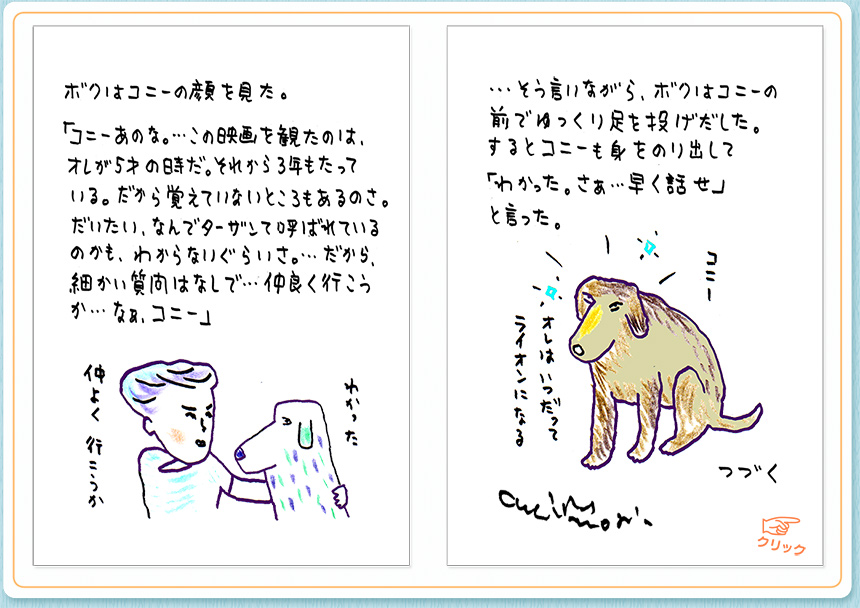 ボクはコニーの顔を見た。
「コニーあのな。…この映画を観たのは、
オレが5才の時だ。それから3年もたって
いる。だから覚えていないところもあるのさ。
だいたい、なんでターザンって呼ばれている
のかも、わからないぐらいさ。…だから、
細かい質問はなしで…仲良く行こう
か…なぁ、コニー」
仲よく行こうか
わかった
…そう言いながら、ボクはコニーの
前でゆっくり足を投げだした。
するとコニーも身をのり出して
「わかった。さぁ…早く話せ」
と言った。
コニー
オレはいつだって
ライオンになる
つづく
クリック